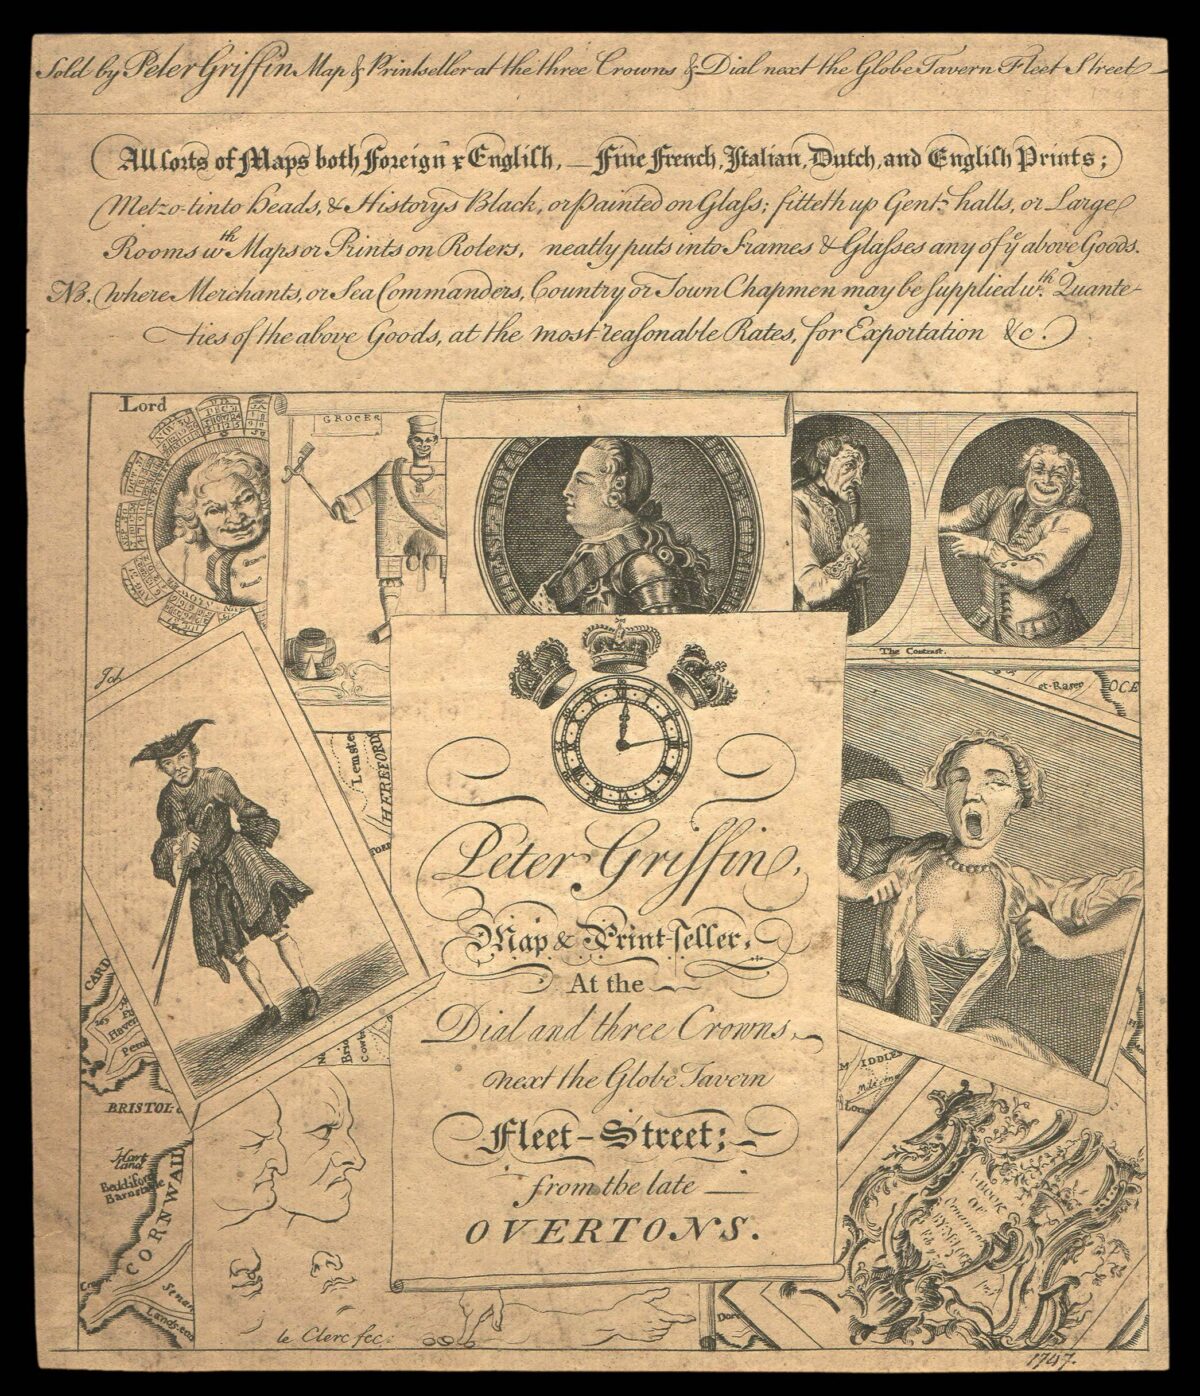 Sold by Peter Griffin Map & Printseller at the three Crowns & Dial next the Globe Tavern Fleet Street
All sorts of Maps both Foreign & English, — Fine French, Italian, Dutch, and English Prints;
Metzo-tinto heads, & Historys Black, or painted on Glass; fitteth up Gent.s halls, or Large
Rooms wth Maps or Prints on Rolers, neatly puts into Frames & Glasses any of ye above Goods.
NB. Where Merchants, or Sea Commanders, Country or Town Chapmen may be supplied wth. Quante-
ties of the above Goods, at the most reasonable Rates, for Exportation &c.
Lord
GROCER
The Contrast.
Joh
et-Barep
OCE
Lemste
HEREFORD
Peter Griffin,
Map & Print-seller,
At the
Dial and three Crowns,
next the Globe Tavern
Fleet-Street;
from the late
OVERTONS.
CARD
Haven
Pem
BRISTOL
Hart
land
Beddiford
Barnstable
CORNWALL
Lands end
MIDDLES
Lon
A BOOK
OF
Ornaments
le Clerc fec.
Dor
1747.